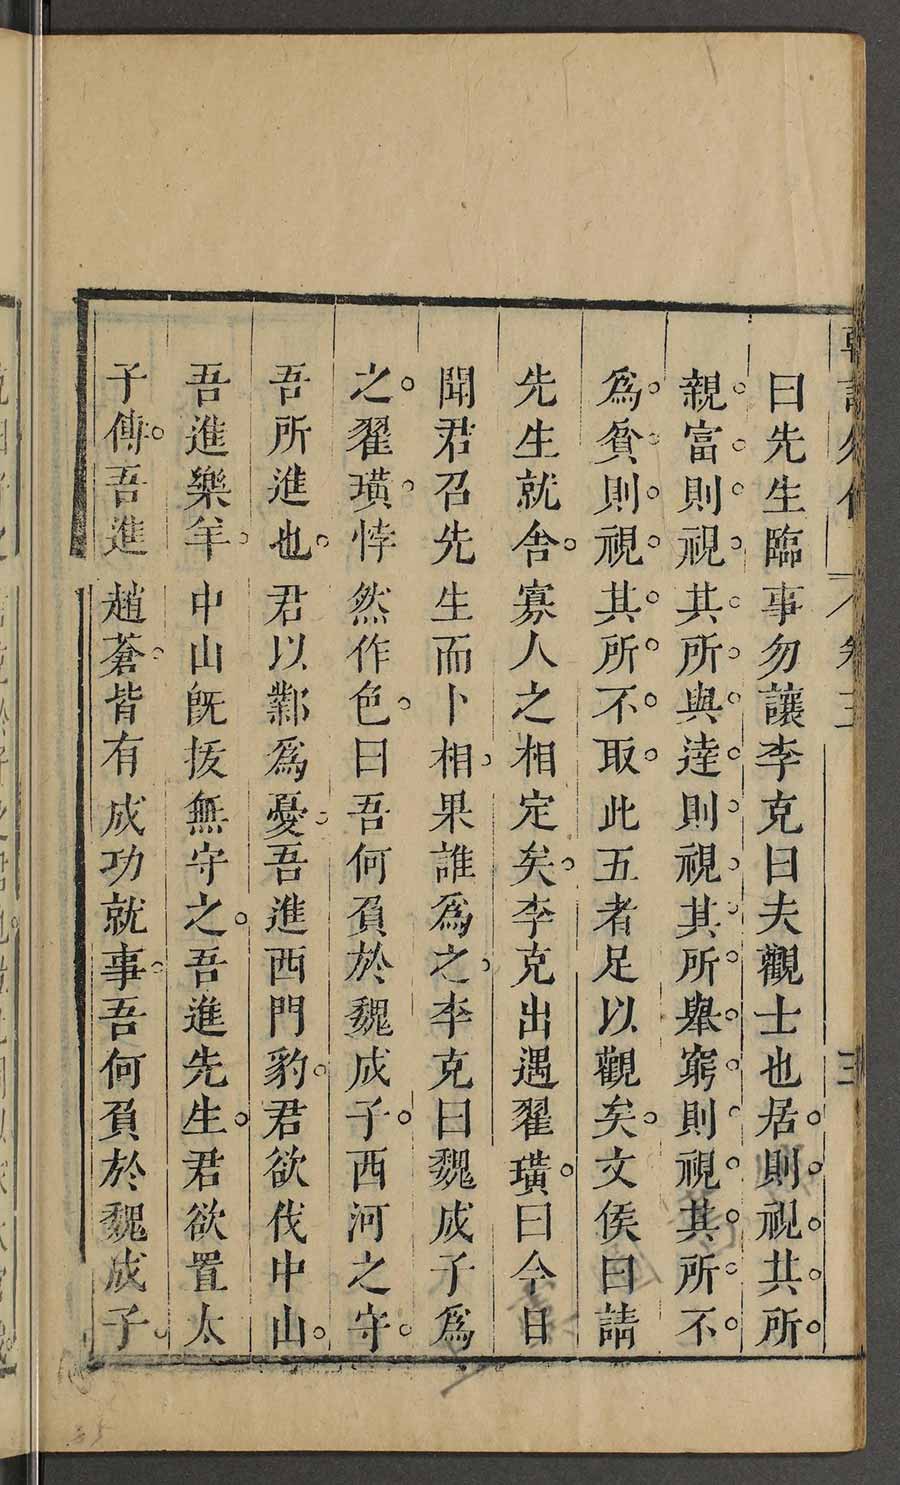 韓詩外傳 卷三 三
曰先生臨事勿讓李克曰夫觀士也居則視其所
親富則視其所與達則視其所舉窮則視其所不
爲貧則視其所不取此五者足以觀矣文侯曰請
先生就舍寡人之相定矣李克出遇翟璜曰今日
聞君召先生而卜相果誰爲之李克曰魏成子爲
之翟璜悖然作色曰吾何負於魏成子西河之守
吾所進也君以鄴爲憂吾進西門豹君欲伐中山
吾進樂羊中山旣拔無守之吾進先生君欲置太
子傳吾進趙蒼皆有成功就事吾何負於魏成子